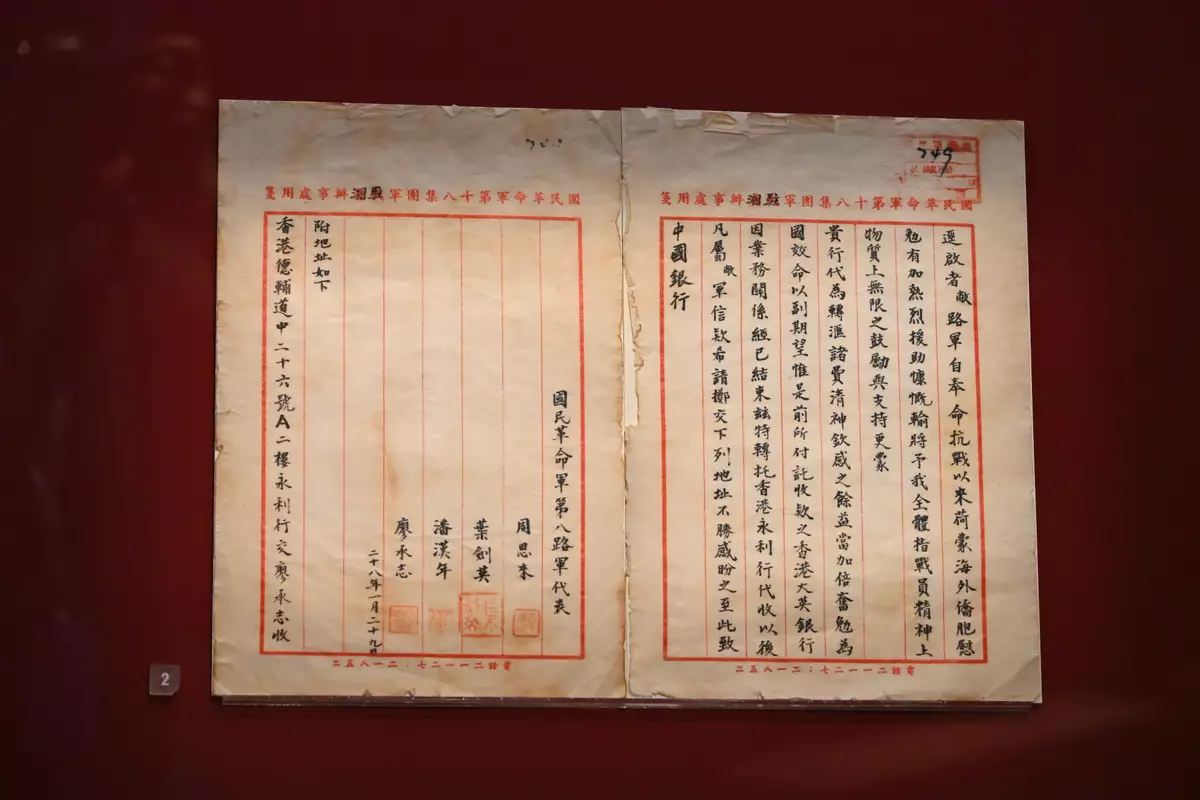 國民革命軍第十八集團軍駐湘辦事處用箋
逕啟者敝路軍自奉命抗戰以來荷蒙海外僑胞慰
勉有加熱烈援助慷慨輸將予我全體指戰員精神上
物質上無限之鼓勵與支持更蒙
貴行代為轉滙諸費清神欽感之餘益當加倍奮勉為
國效命以副期望惟是前所付託收欵之香港大英銀行
因業務關係經已結束玆特轉托香港永利行代收以後
凡屬敝軍信欵希請擲交下列地址不勝感盼之至此致
中國銀行
電話二一一二七:二一八五二
749
國民革命軍第十八集團軍駐湘辦事處用箋
國民革命軍第八路軍代表
周恩來
葉劍英
潘漢年
廖承志
二十八年一月二十九日
附地址如下
香港德輔道中二十六號A二樓永利行交廖承志收
電話二一一二七:二一八五二
2